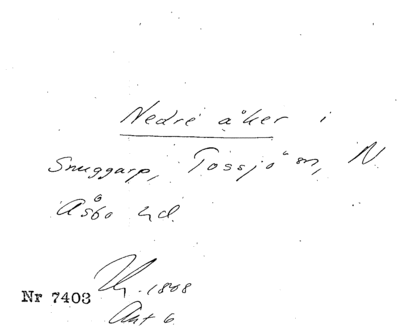 Nedre åker i
Snuggarp, Tossjö sn, N
Åsbo hd.
Nr 7403
1808
Akt 6